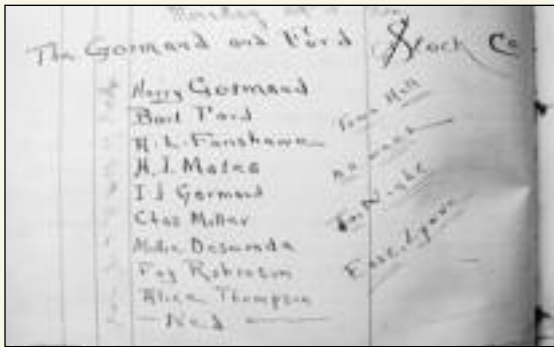 Monday
The Gormand and Ford Stock Co
Harry Gormand
Bert Ford
H. L. Fanshawe
H. J. Mates
I J Gormand
Chas Miller
Desmonda
Fay Robinson
Alice Thompson
Ned
Town Hall
all week
To Night
East Lynne